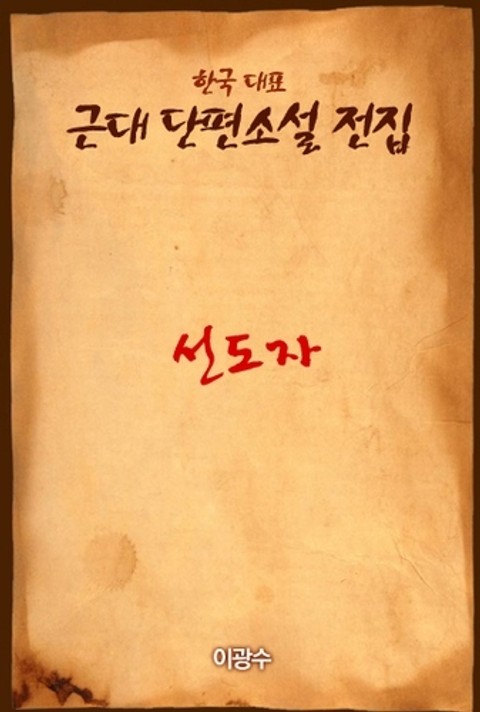 한국 대표
근대 단편소설 전집
선도자
이광수